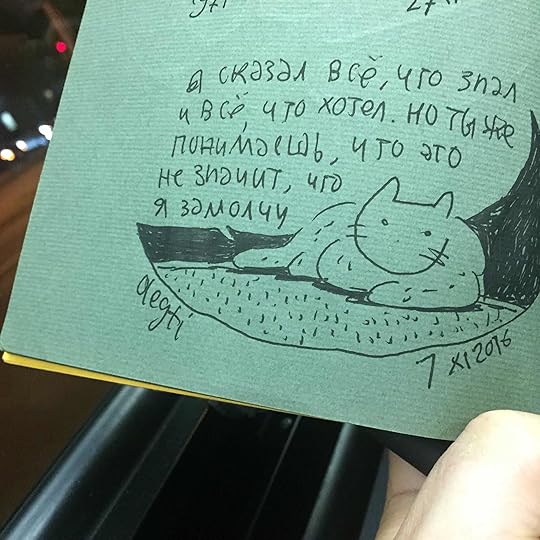 я сказал всё, что знал
и всё, что хотел. но ты же
понимаешь, что это
не значит, что
я замолчу
7 XI 2016